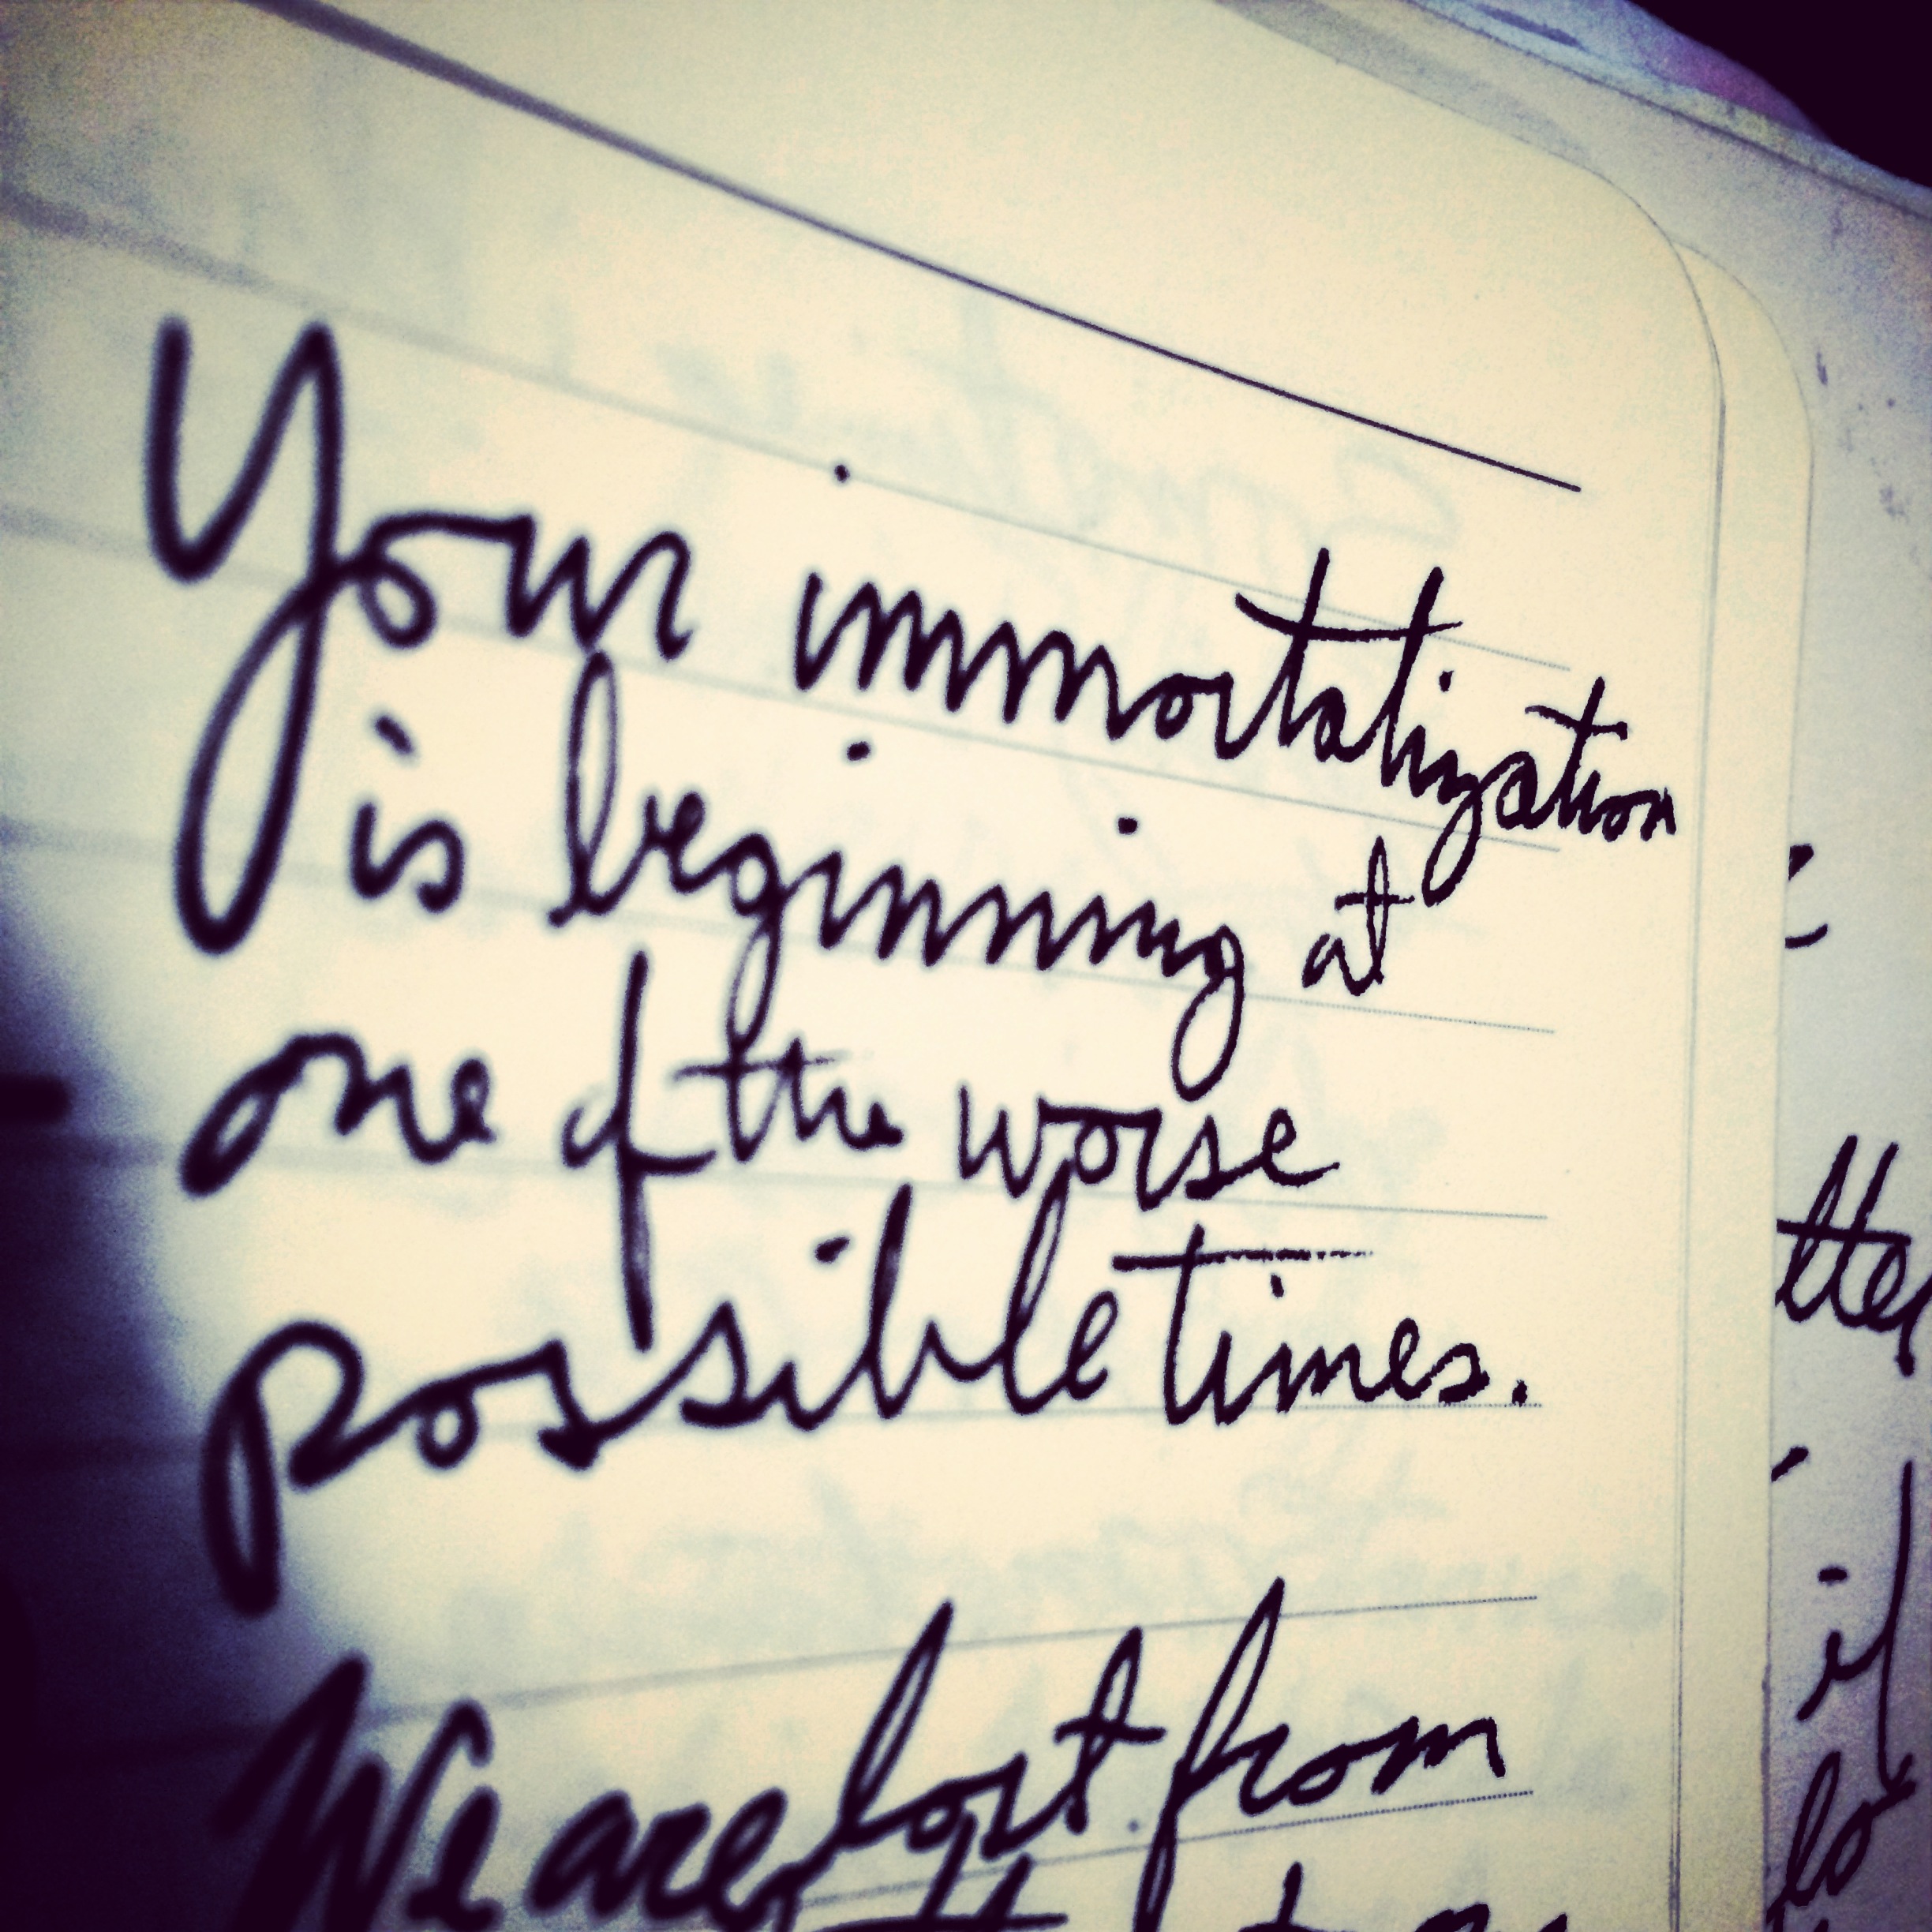 Your immortalization
is beginning at
one of the worse
possible times.
We are lost from